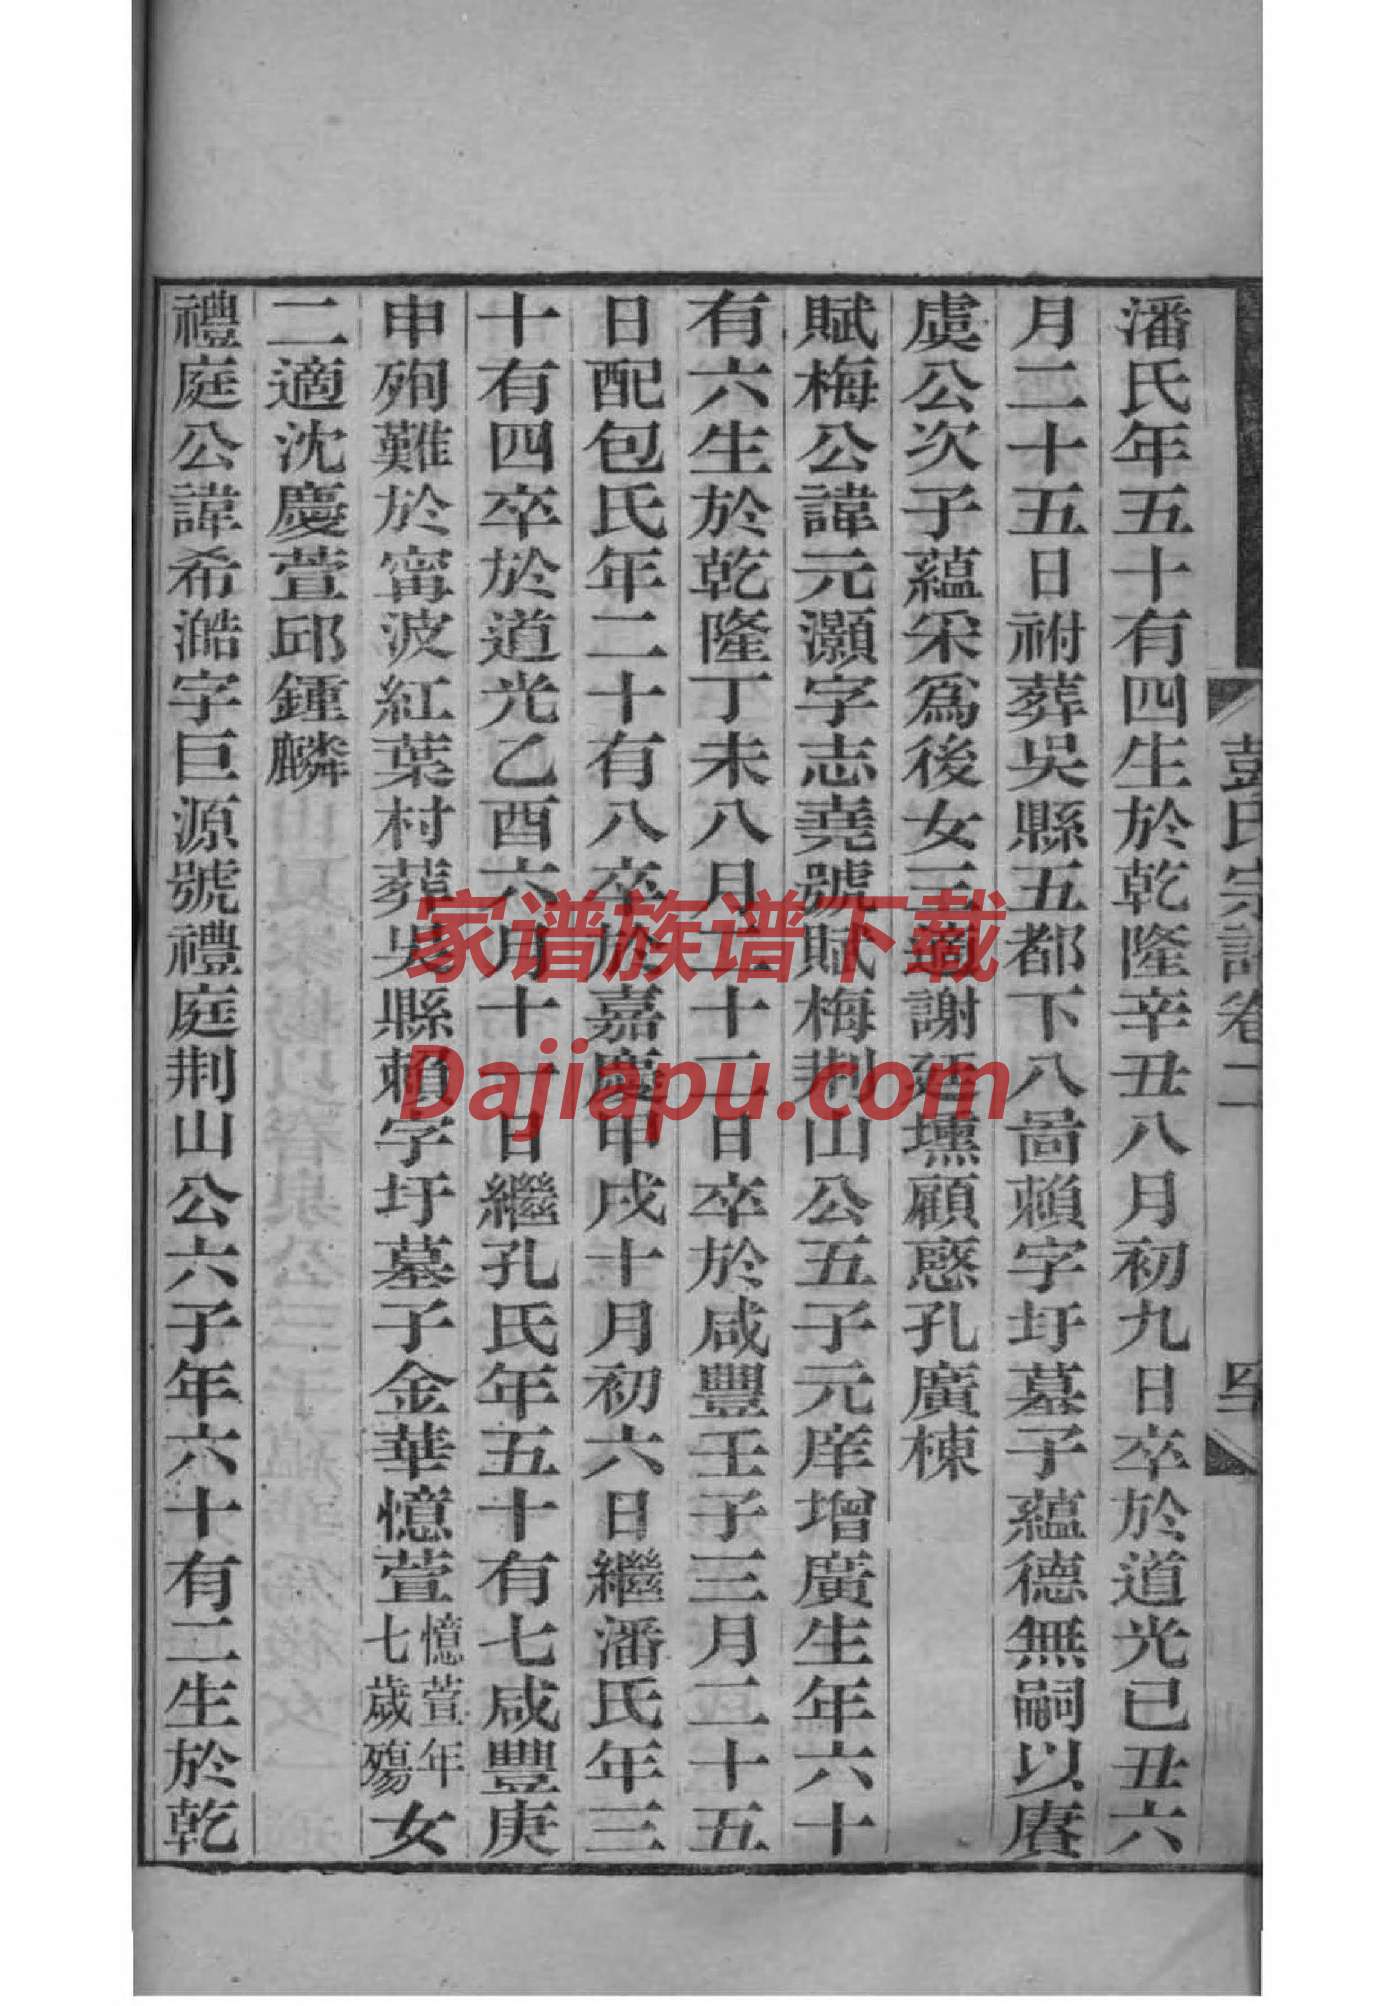 彭氏宗譜卷二
潘氏年五十有四生於乾隆辛丑八月初九日卒於道光己丑六
月二十五日祔葬吳縣五都下八啚賴字圩墓子蘊德無嗣以賡
虞公次子蘊罙爲後女三謝延壎顧慜孔廣棟
賦梅公諱元灝字志堯號賦梅荆山公五子元庠增廣生年六十
有六生於乾隆丁未八月二十二日卒於咸豐壬子三月二十五
日配包氏年二十有八卒於嘉慶甲戌十月初六日繼潘氏年三
十有四卒於道光乙酉六月十一日繼孔氏年五十有七咸豐庚
申殉難於甯波紅葉村葬吳縣賴字圩墓子金華憶萱憶萱年七歲殤女
二適沈慶萱邱鍾麟
禮庭公諱希澔字巨源號禮庭荆山公六子年六十有二生於乾
家谱族谱下载
Dajiapu.com